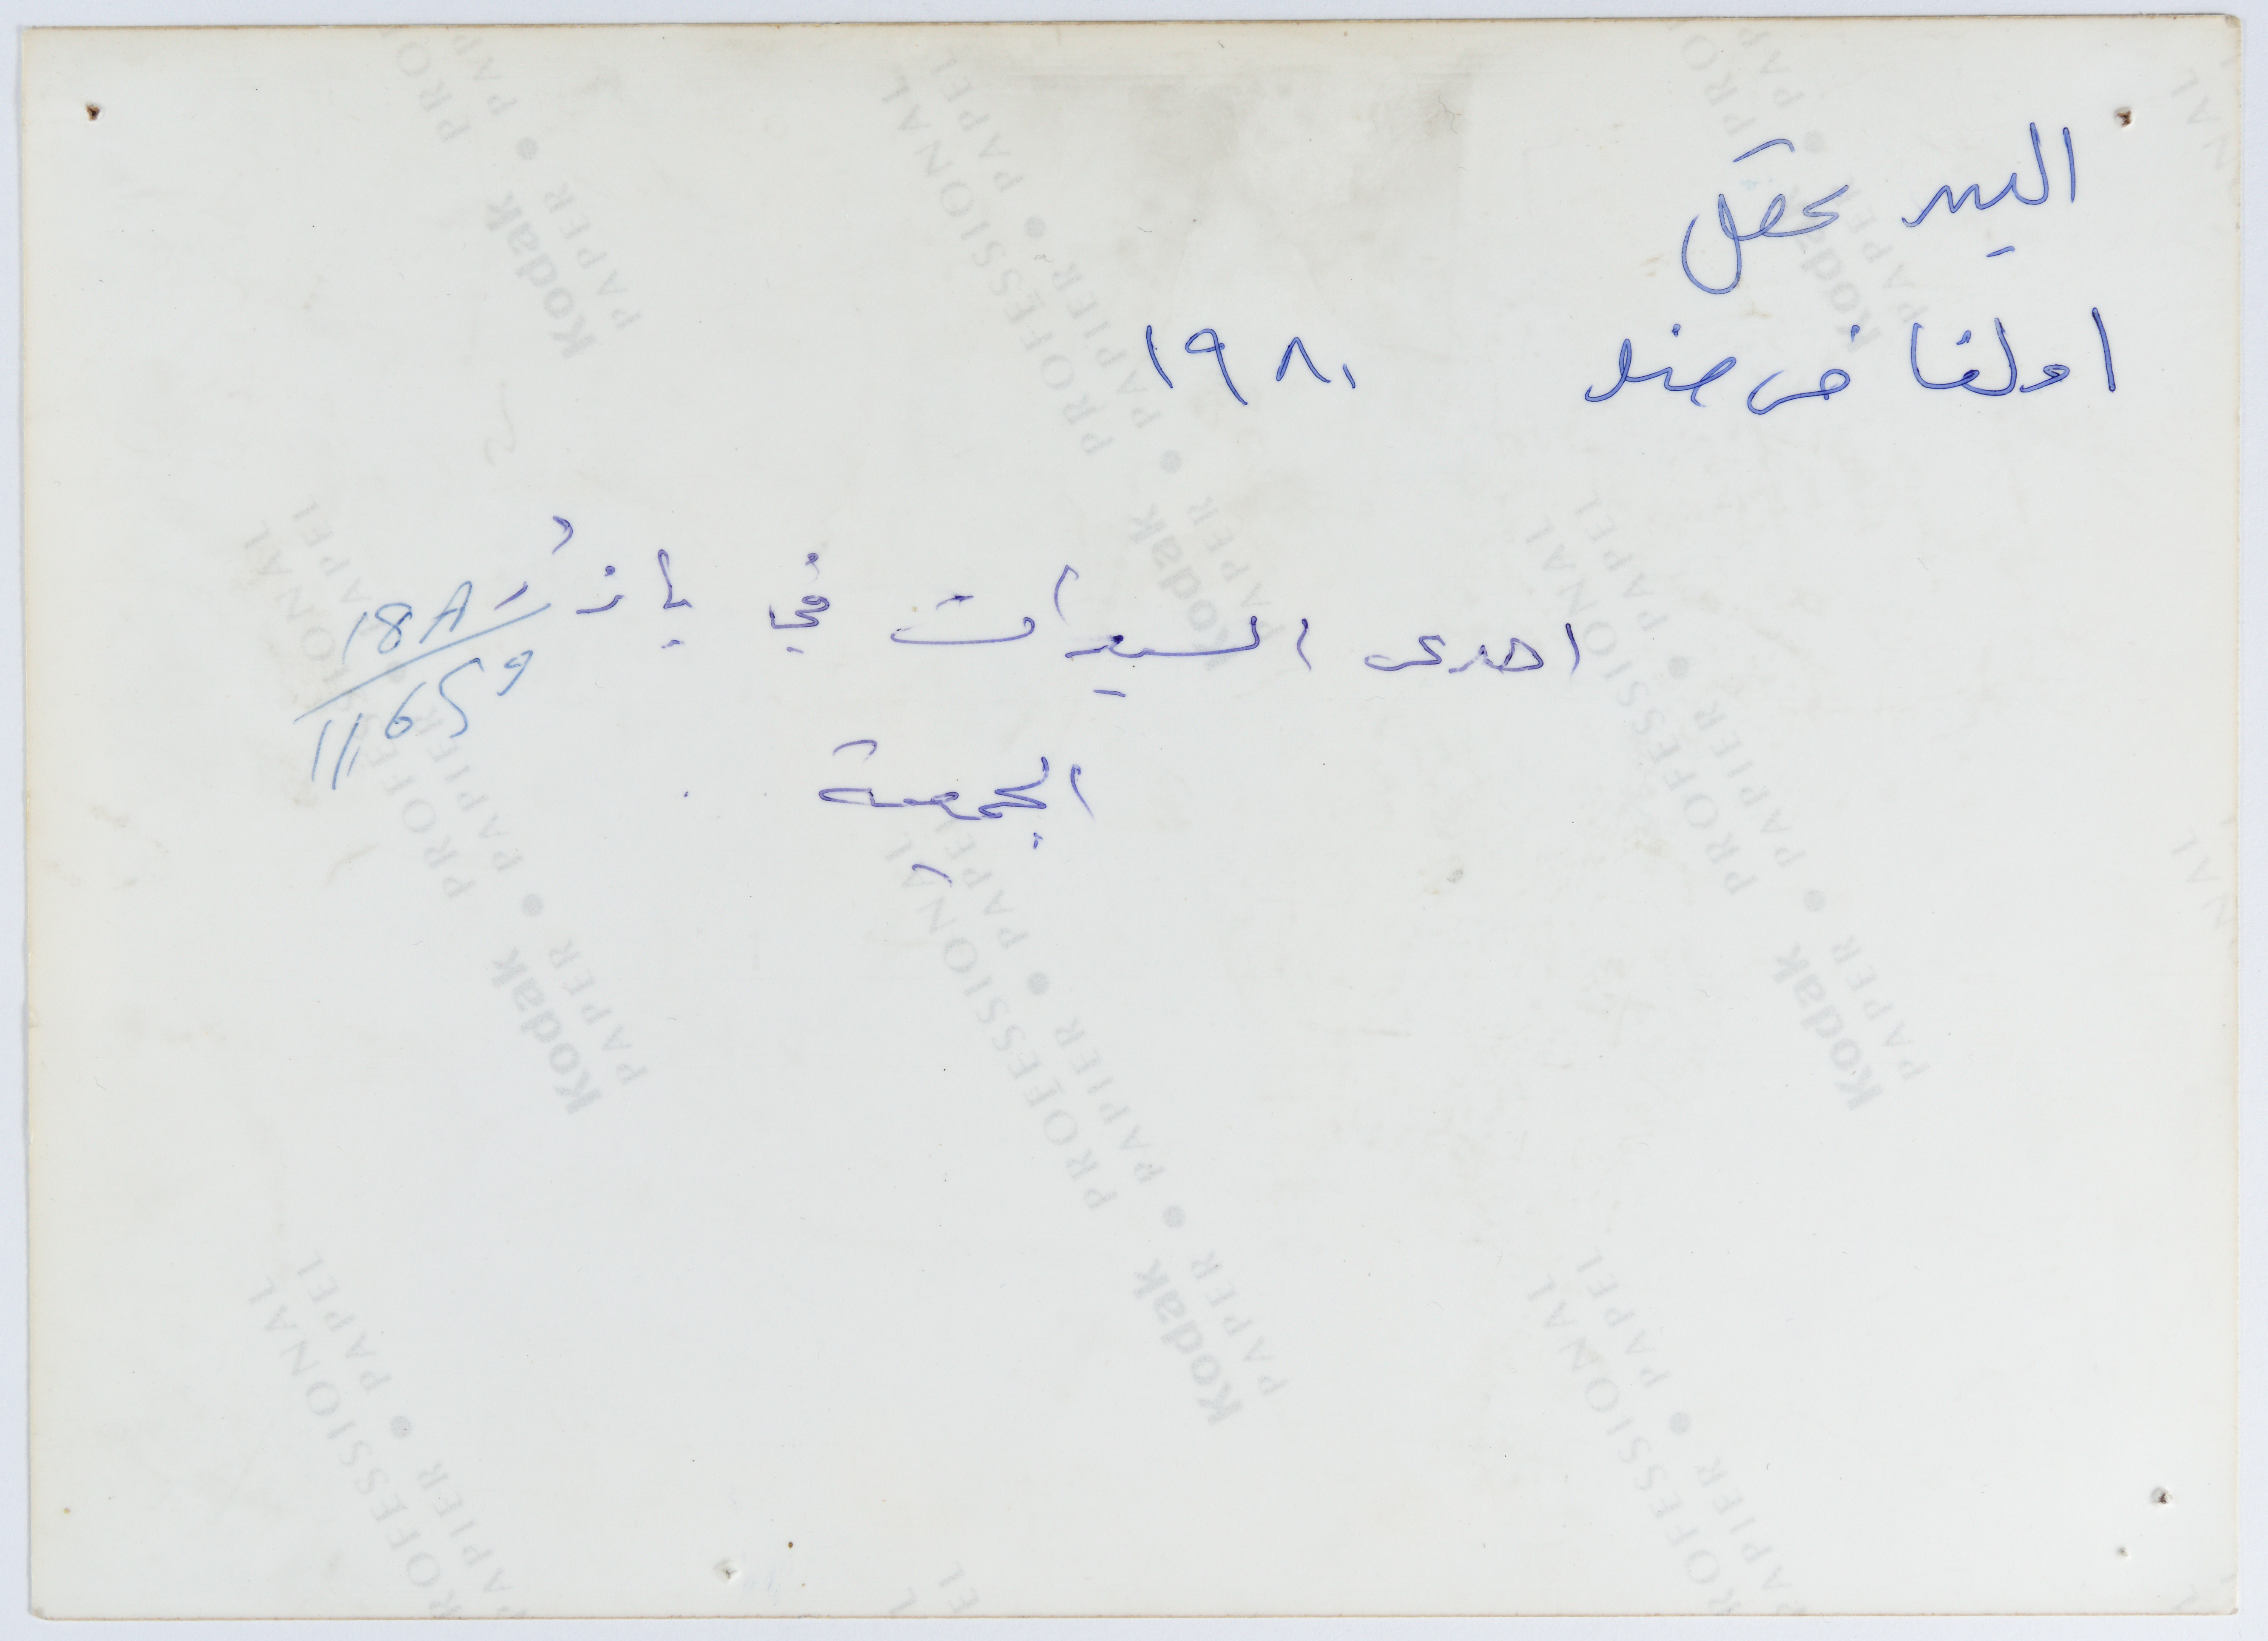 اليس حقل
اولغا فرصند ١٩٨٠
احدى السيدات في بازار
الجمعية
18A
11659
Kodak PROFESSIONAL PAPER • PAPIER • PAPEL